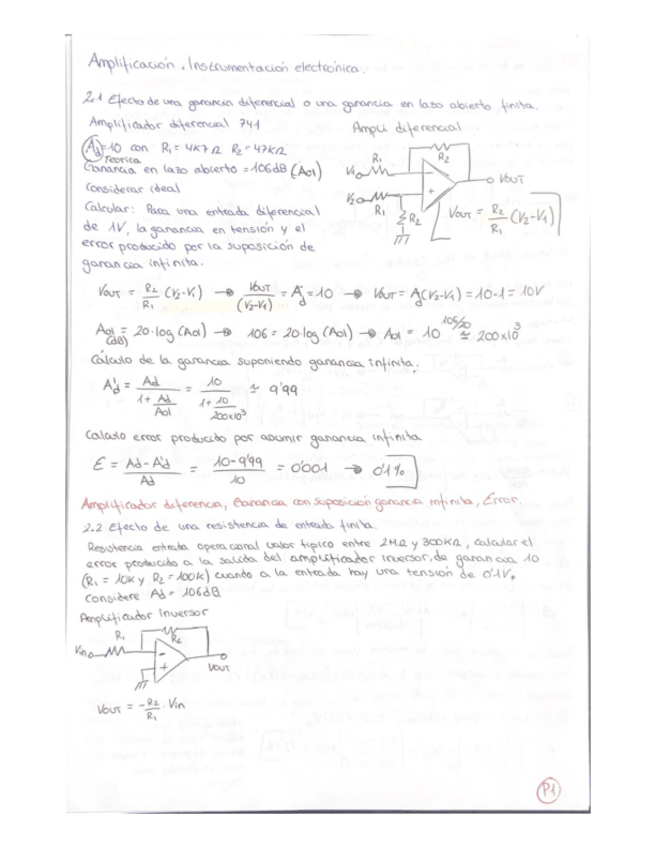 Amplificación. Instrumentación electrónica.
2.1 Efecto de una ganancia diferencial o una ganancia en lazo abierto finita.
Amplificador diferencial 741
Ampli diferencial
Ad=10 con R1 = 4K7Ω R2 = 47KΩ
Teorica
Ganancia en lazo abierto = 106dB (Aol)
Considerar ideal
Calcular: Para una entrada diferencial
de 1V, la ganancia en tensión y el
error producido por la suposición de
ganancia infinita.
R1
R2
V1
V2
R1
R2
VOUT
VOUT = R2/R1 (V2-V1)
VOUT = R2/R1 (V2-V1) → VOUT/(V2-V1) = Ad = 10 → VOUT = Ad(V2-V1) = 10·1 = 10V
Aol (dB) = 20·log (Aol) → 106 = 20·log (Aol) → Aol = 10^106/20 ≈ 200x10³
Cálculo de la ganancia suponiendo ganancia infinita:
A'd = Ad/(1 + Ad/Aol) = 10/(1 + 10/200x10³) ≈ 9'99
Calculo error producido por asumir ganancia infinita
E = (Ad - A'd)/Ad = (10 - 9'99)/10 = 0'001 → 0'1%
Amplificador diferencia, Ganancia con suposición ganancia infinita, Error.
2.2 Efecto de una resistencia de entrada finita.
Resistencia entrada operacional valor tipico entre 2MΩ y 300KΩ, calcular el
error producido a la salida del amplificador inversor, de ganancia 10
(R1 = 10K y R2 = 100K) cuando a la entrada hay una tensión de 0'1V.
Considere Ad = 106dB
Amplificador inversor
R1
R2
Vin
VOUT
VOUT = -R2/R1 · Vin
P1